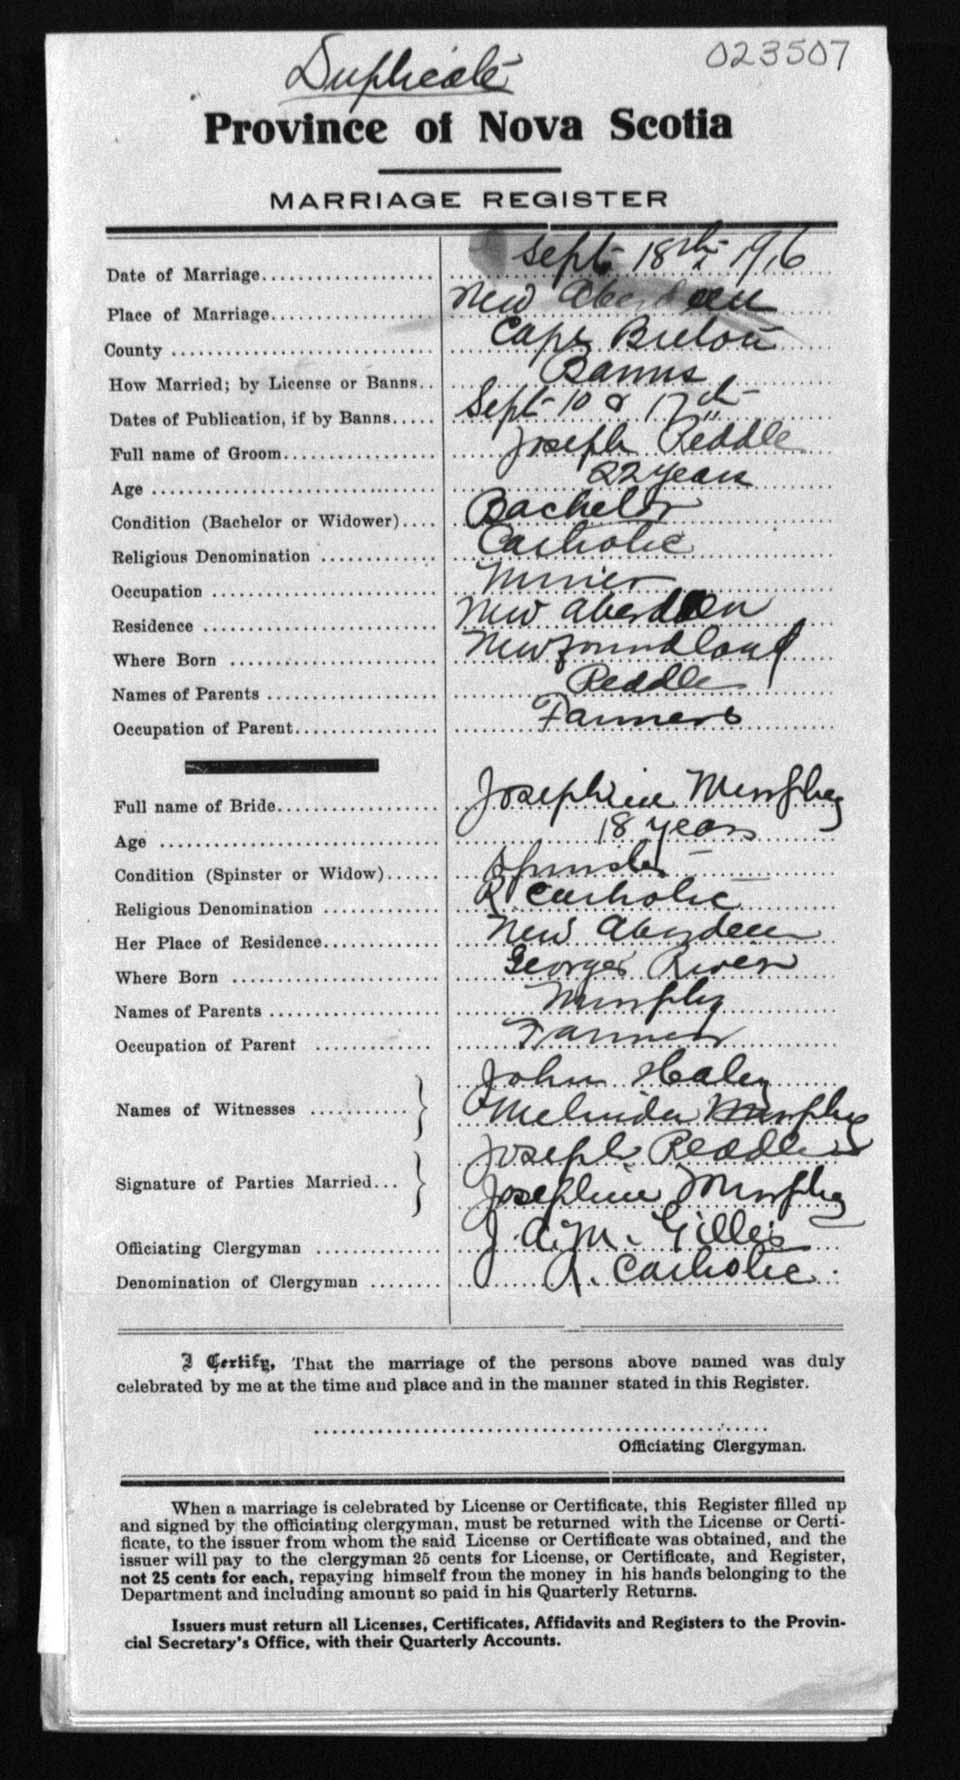 Duplicate
023507
Province of Nova Scotia
MARRIAGE REGISTER
Date of Marriage.................... Sept 18th 1916
Place of Marriage................... New Aberdeen
County ............................. Cape Breton
How Married; by License or Banns.. Banns
Dates of Publication, if by Banns..... Sept 10 & 17th
Full name of Groom.................. Joseph Reddle
Age ................................ 22 years
Condition (Bachelor or Widower).... Bachelor
Religious Denomination ............. Catholic
Occupation ......................... Miner
Residence .......................... New Aberdeen
Where Born ......................... Newfoundland
Names of Parents ................... Reddle
Occupation of Parent................ Farmers
Full name of Bride.................. Josephine Murphy
Age ................................ 18 years
Condition (Spinster or Widow)...... Spinster
Religious Denomination ............. R. Catholic
Her Place of Residence............. New Aberdeen
Where Born ......................... Georges River
Names of Parents ................... Murphy
Occupation of Parent ............... Farmer
Names of Witnesses ........... } John Haley
Melinda Murphy
Signature of Parties Married... } Joseph Reddle
Josephine Murphy
Officiating Clergyman .............. J. A. M. Gillis
Denomination of Clergyman ........ R. Catholic.
I Certify, That the marriage of the persons above named was duly
celebrated by me at the time and place and in the manner stated in this Register.
Officiating Clergyman.
When a marriage is celebrated by License or Certificate, this Register filled up
and signed by the officiating clergyman, must be returned with the License or Certi-
ficate, to the issuer from whom the said License or Certificate was obtained, and the
issuer will pay to the clergyman 25 cents for License, or Certificate, and Register,
not 25 cents for each, repaying himself from the money in his hands belonging to the
Department and including amount so paid in his Quarterly Returns.
Issuers must return all Licenses, Certificates, Affidavits and Registers to the Provin-
cial Secretary's Office, with their Quarterly Accounts.